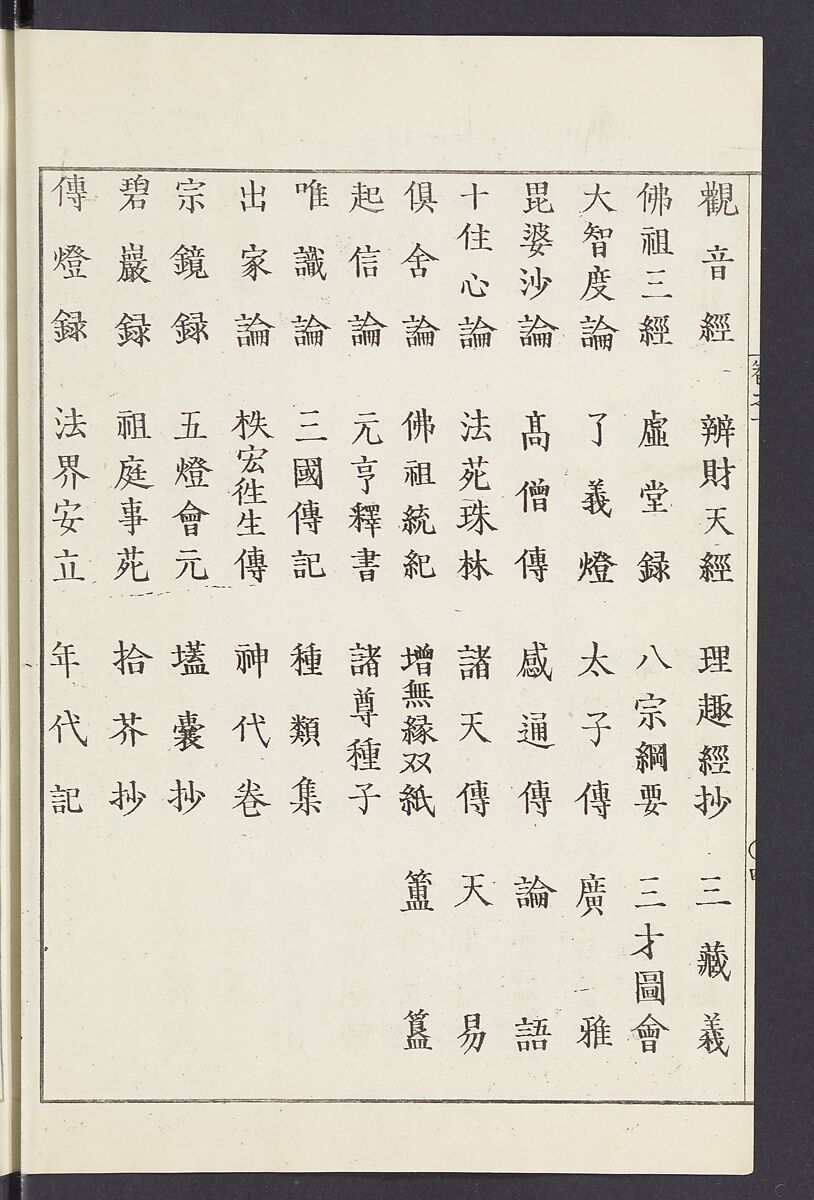 觀音經 辨財天經 理趣經抄 三藏義
佛祖三經 虛堂録 八宗綱要 三才圖會
大智度論 了義燈 太子傳 廣雅
毘婆沙論 髙僧傳 感通傳 論語
十住心論 法苑珠林 諸天傳 天易
俱舍論 佛祖統紀 增無緣双紙 簠簋
起信論 元亨釋書 諸尊種子
唯識論 三國傳記 種類集
出家論 袾宏徃生傳 神代卷
宗鏡録 五燈會元 壒囊抄
碧巖録 祖庭事苑 拾芥抄
傳燈録 法界安立 年代記